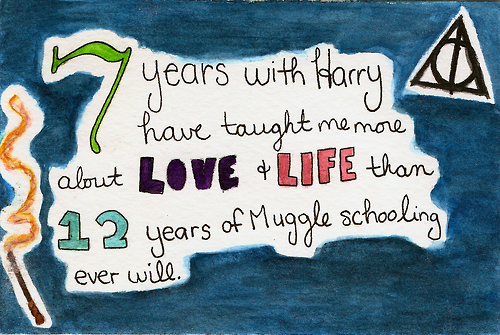 7 years with Harry
have taught me more
about LOVE & LIFE than
12 years of Muggle schooling
ever will.